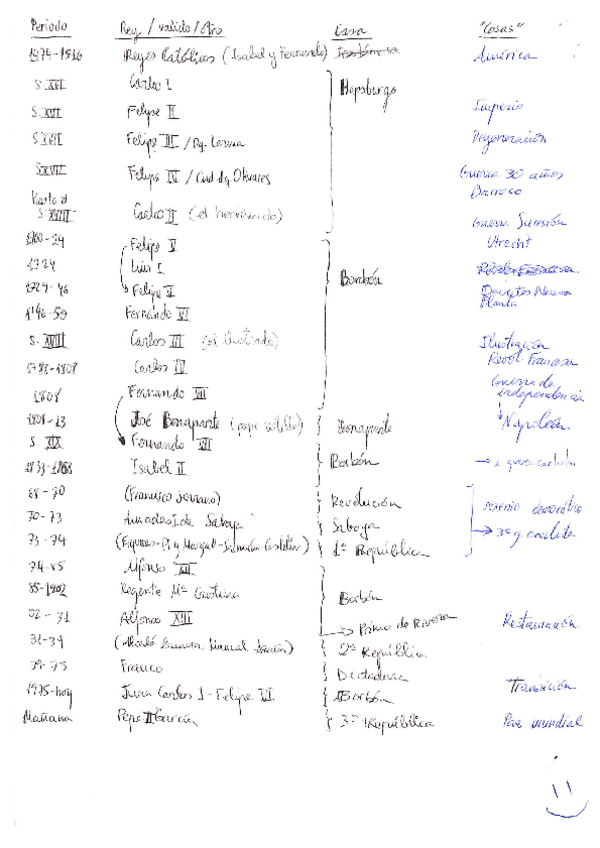 Periodo Rey / valido / Otro Casa "Cosas"
1474-1516 Reyes Católicos (Isabel y Fernando) América
S. XVI Carlos I Hapsburgo
S. XVI Felipe II Imperio
S. XVII Felipe III / Dq. Lerma Degeneración
S. XVII Felipe IV / Cnd dq Olivares Guerra 30 años
Barroco
Hasta el
S. XVIII Carlos II (el hechizado) Guerra Sucesión
1700-24 Felipe V Utrecht
1724 Luis I Borbón
1724-46 Felipe V Decretos Nueva
Planta
1746-59 Fernando VI
S. XVIII Carlos III (el ilustrado) Ilustración
1788-1808 Carlos IV Revol. Francesa
1808 Fernando VII Guerra de
independencia
1808-13 José Bonaparte (pepe botella) Bonaparte Napoleón
S. XIX Fernando VII
1833-1868 Isabel II Borbón
68-70 (Francisco Serrano) Revolución sexenio democrático
70-73 Amadeo I de Saboya Saboya → 3ª g. carlista
73-74 (Figueras-Pi y Margall-Salmerón-Castelar) 1ª República
74-85 Alfonso XII
85-1902 Regente Mª Cristina Borbón
02-31 Alfonso XIII → Primo de Rivera Restauración
31-39 (Alcalá Zamora, Manuel Azaña) 2ª República
39-75 Franco Dictadura
1975-hoy Juan Carlos I - Felipe VI Borbón Transición
Mañana Pepe II García 3ª República Paz mundial